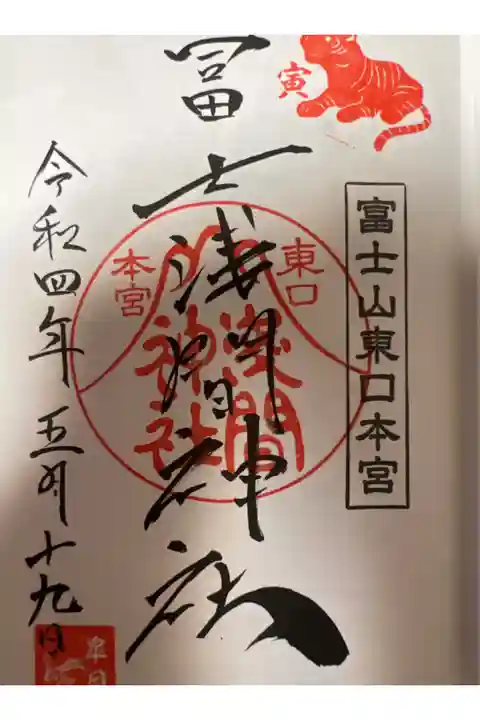 寅
富士山東口本宮
冨士浅間神社
東口
本宮
浅間
神社
令和四年五月十九日
皐月